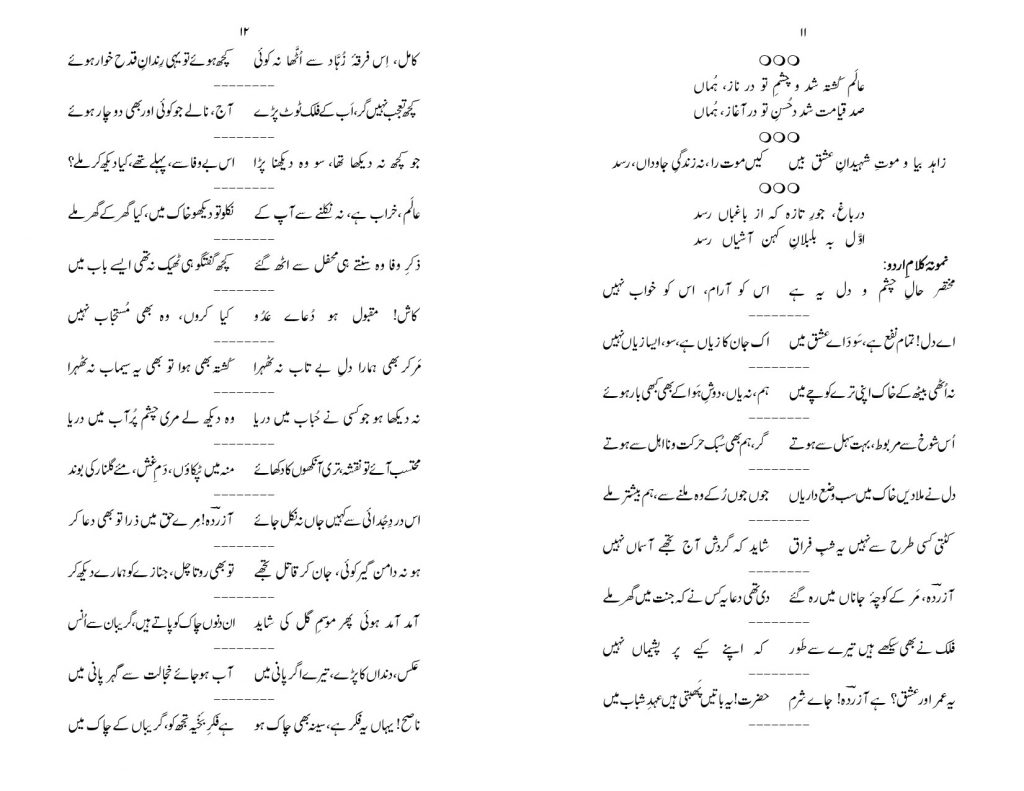 ۱۱
○○○
عالَم کُشتہ شد و چشمِ تو در ناز، ہُماں
صد قیامت شد و حُسنِ تو در آغاز، ہُماں
○○○
زاہد بیا و موتِ شہیدانِ عشق بیں کیں موت را، نہ زندگیِ جاوداں، رسد
○○○
در باغ، جورِ تازہ کہ از باغباں رسد
اوّل بہ بلبلانِ کہن آشیاں رسد
نمونۂ کلامِ اردو:
مختصر حالِ چشم و دل یہ ہے اس کو آرام، اس کو خواب نہیں
--------
اے دل! تمام نفع ہے، سَوداے عشق میں اک جان کا زیاں ہے، سو، ایسا زیاں نہیں
--------
نہ اُٹھی بیٹھ کے خاک اپنی ترے کوچے میں ہم، نہ یاں، دوشِ ہَوا کے بھی کبھی بار ہوئے
--------
اُس شوخ سے مربوط، بہت سہل سے ہوتے گر، ہم بھی سُبک حرکت و نا اہل سے ہوتے
--------
دل نے ملا دیں خاک میں سب وضع داریاں جوں جوں رُکے وہ ملنے سے، ہم بیشتر ملے
--------
کٹتی کسی طرح سے نہیں یہ شبِ فراق شاید کہ گردش آج تجھے آسماں نہیں
--------
آزردہ، مَر کے کوچۂ جاناں میں رہ گئے دی تھی دعا یہ کس نے کہ جنت میں گھر ملے
--------
فلک نے بھی سیکھے ہیں تیرے سے طَور کہ اپنے کیے پر پشیماں نہیں
--------
یہ عمر اور عشق؟ ہے آزردہ! جاے شرم حضرت! یہ باتیں پَھبتی ہیں عہدِ شباب میں
--------
۱۲
کامل، اِس فرقۂ زُہّاد سے اُٹھا نہ کوئی کچھ ہوئے تو یہی رِندانِ قدح خوار ہوئے
--------
کچھ تعجب نہیں گر، اَب کے فلک ٹوٹ پڑے آج، نالے جو کوئی اور بھی دو چار ہوئے
--------
جو کچھ نہ دیکھا تھا، سو وہ دیکھنا پڑا اس بے وفا سے، پہلے تھے، کیا دیکھ کر ملے؟
--------
عالَم، خراب ہے، نہ نکلنے سے آپ کے نکلو تو دیکھو خاک میں، کیا گھر کے گھر ملے
--------
ذکرِ وفا وہ سنتے ہی محفل سے اٹھ گئے کچھ گفتگو ہی ٹھیک نہ تھی ایسے باب میں
--------
کاش! مقبول ہو دُعاے عَدُو کیا کروں، وہ بھی مُستجاب نہیں
--------
مَر کر بھی ہمارا دلِ بے تاب نہ ٹھہرا کُشتہ بھی ہوا تو بھی یہ سیماب نہ ٹھہرا
--------
نہ دیکھا ہو جو کسی نے حُباب میں دریا وہ دیکھ لے مری چشمِ پُر آب میں دریا
--------
محتسب آئے تو نقشہ، تری آنکھوں کا دکھائے منہ میں ٹپکاؤں، دَمِ غش، مئے گلنار کی بوند
--------
اس دردِ جُدائی سے کہیں جاں نہ نکل جائے آزردہ! مِرے حق میں ذرا تو بھی دعا کر
--------
ہو نہ دامن گیر کوئی، جان کر قاتل تجھے تو بھی روتا چل، جنازے کو ہمارے دیکھ کر
--------
آمد آمد ہوئی پھر موسمِ گل کی شاید ان دنوں چاک کو پاتے ہیں، گریبان سے اُنس
--------
عکس، دنداں کا پڑے، تیرے اگر پانی میں آب ہو جائے خجالت سے گہر پانی میں
--------
ناصح! یہاں یہ فکر ہے، سینہ بھی چاک ہو ہے فکرِ بخیہ تجھ کو، گریباں کے چاک میں